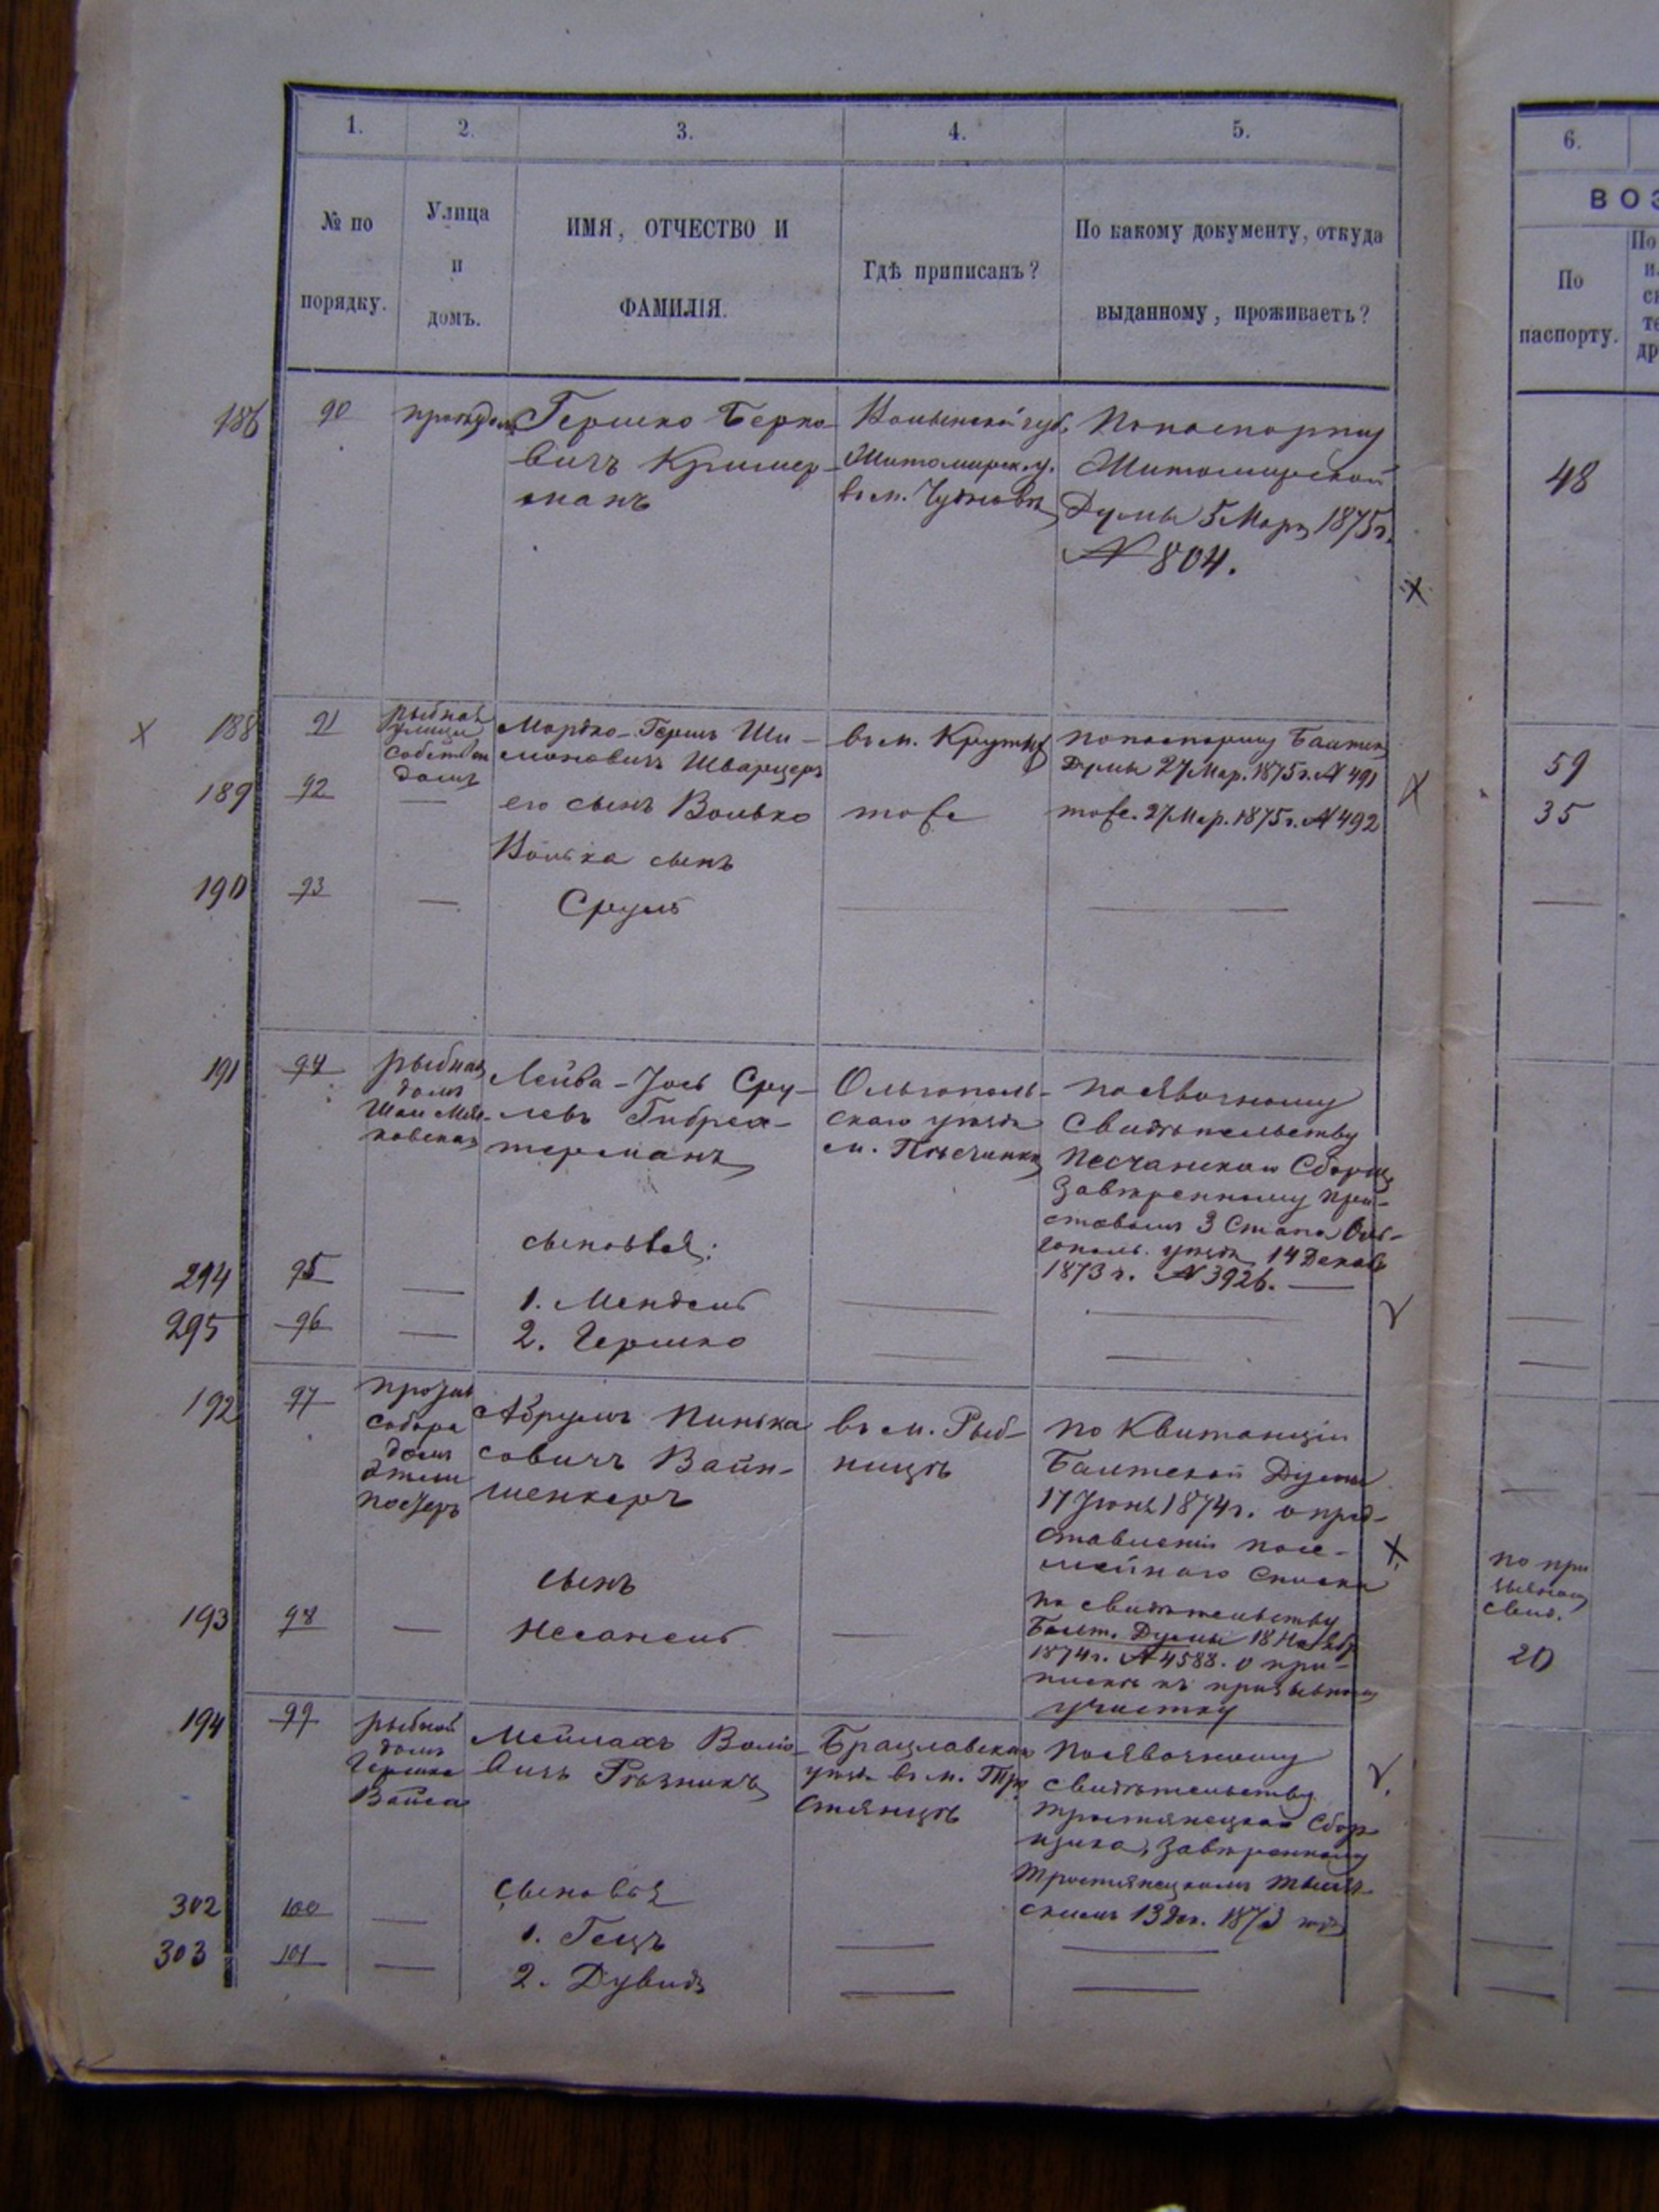 1. 2. 3. 4. 5. 6.
№ по порядку.
Улица и домъ.
ИМЯ, ОТЧЕСТВО И ФАМИЛІЯ.
Гдѣ приписанъ?
По какому документу, откуда выданному, проживаетъ?
ВОЗ
По паспорту.
186 90
Гершко Берко-
вичъ Кример-
манъ
Волынской губ.
Житомирск. у.
въ м. Чудновѣ
По паспорту
Житомирской
Думы 5 Марта 1875 г.
№ 804.
48
х 188 91
рыбная
улица
собствен
домъ
Мордко-Гершъ Ши-
моновичъ Шварцеръ
въ м. Крутыхъ
по паспорту Балтск
Думы 27 Мар. 1875 г. № 491
59
189 92 —
его сынъ Волько
тоже
тоже. 27 Мар. 1875 г. № 492
35
Волька сынъ
190 93 —
Сруль
191 94
рыбная
домъ
Лейба-Іось Сру-
левъ
терманъ
Ольгополь-
скаго уѣзда
м. Пѣсчанкѣ
по явочному
свидѣтельству
Песчанскаго Сборщ.
завѣренному при-
ставомъ 3 Стана Оль-
гополь. уѣзда 14 Декаб
1873 г. № 3926. —
сыновья:
294 95 —
1. Мендель
295 96 —
2. Гершко
192 97
собора
домъ
Абрумъ Пинька
совичъ Вайн-
шенкеръ
въ м. Рыб-
ницѣ
по Квитанціи
Балтской Думы
17 Іюня 1874 г. о пред-
ставленіи посе-
мейного списка
по при
зывному
свид.
сынъ
193 98 —
Несанель
по свидѣтельству
Балт. Думы 18 Ноябр
1874 г. № 4588. о при-
пискѣ къ призывному
участку
20
194 99
рыбной
домъ
Гершка
Вайса
Мейлахъ Волко-
вичъ Рѣзникъ
Брацлавскаго
уѣзда въ м. Тро
стянцѣ
по явочному
свидѣтельству
Тростянецкаго Сбор-
щика, завѣренному
Тростянецкимъ
13 Дек. 1873 года
сыновья
302 100 —
1. Гецъ
303 101 —
2. Дувидъ